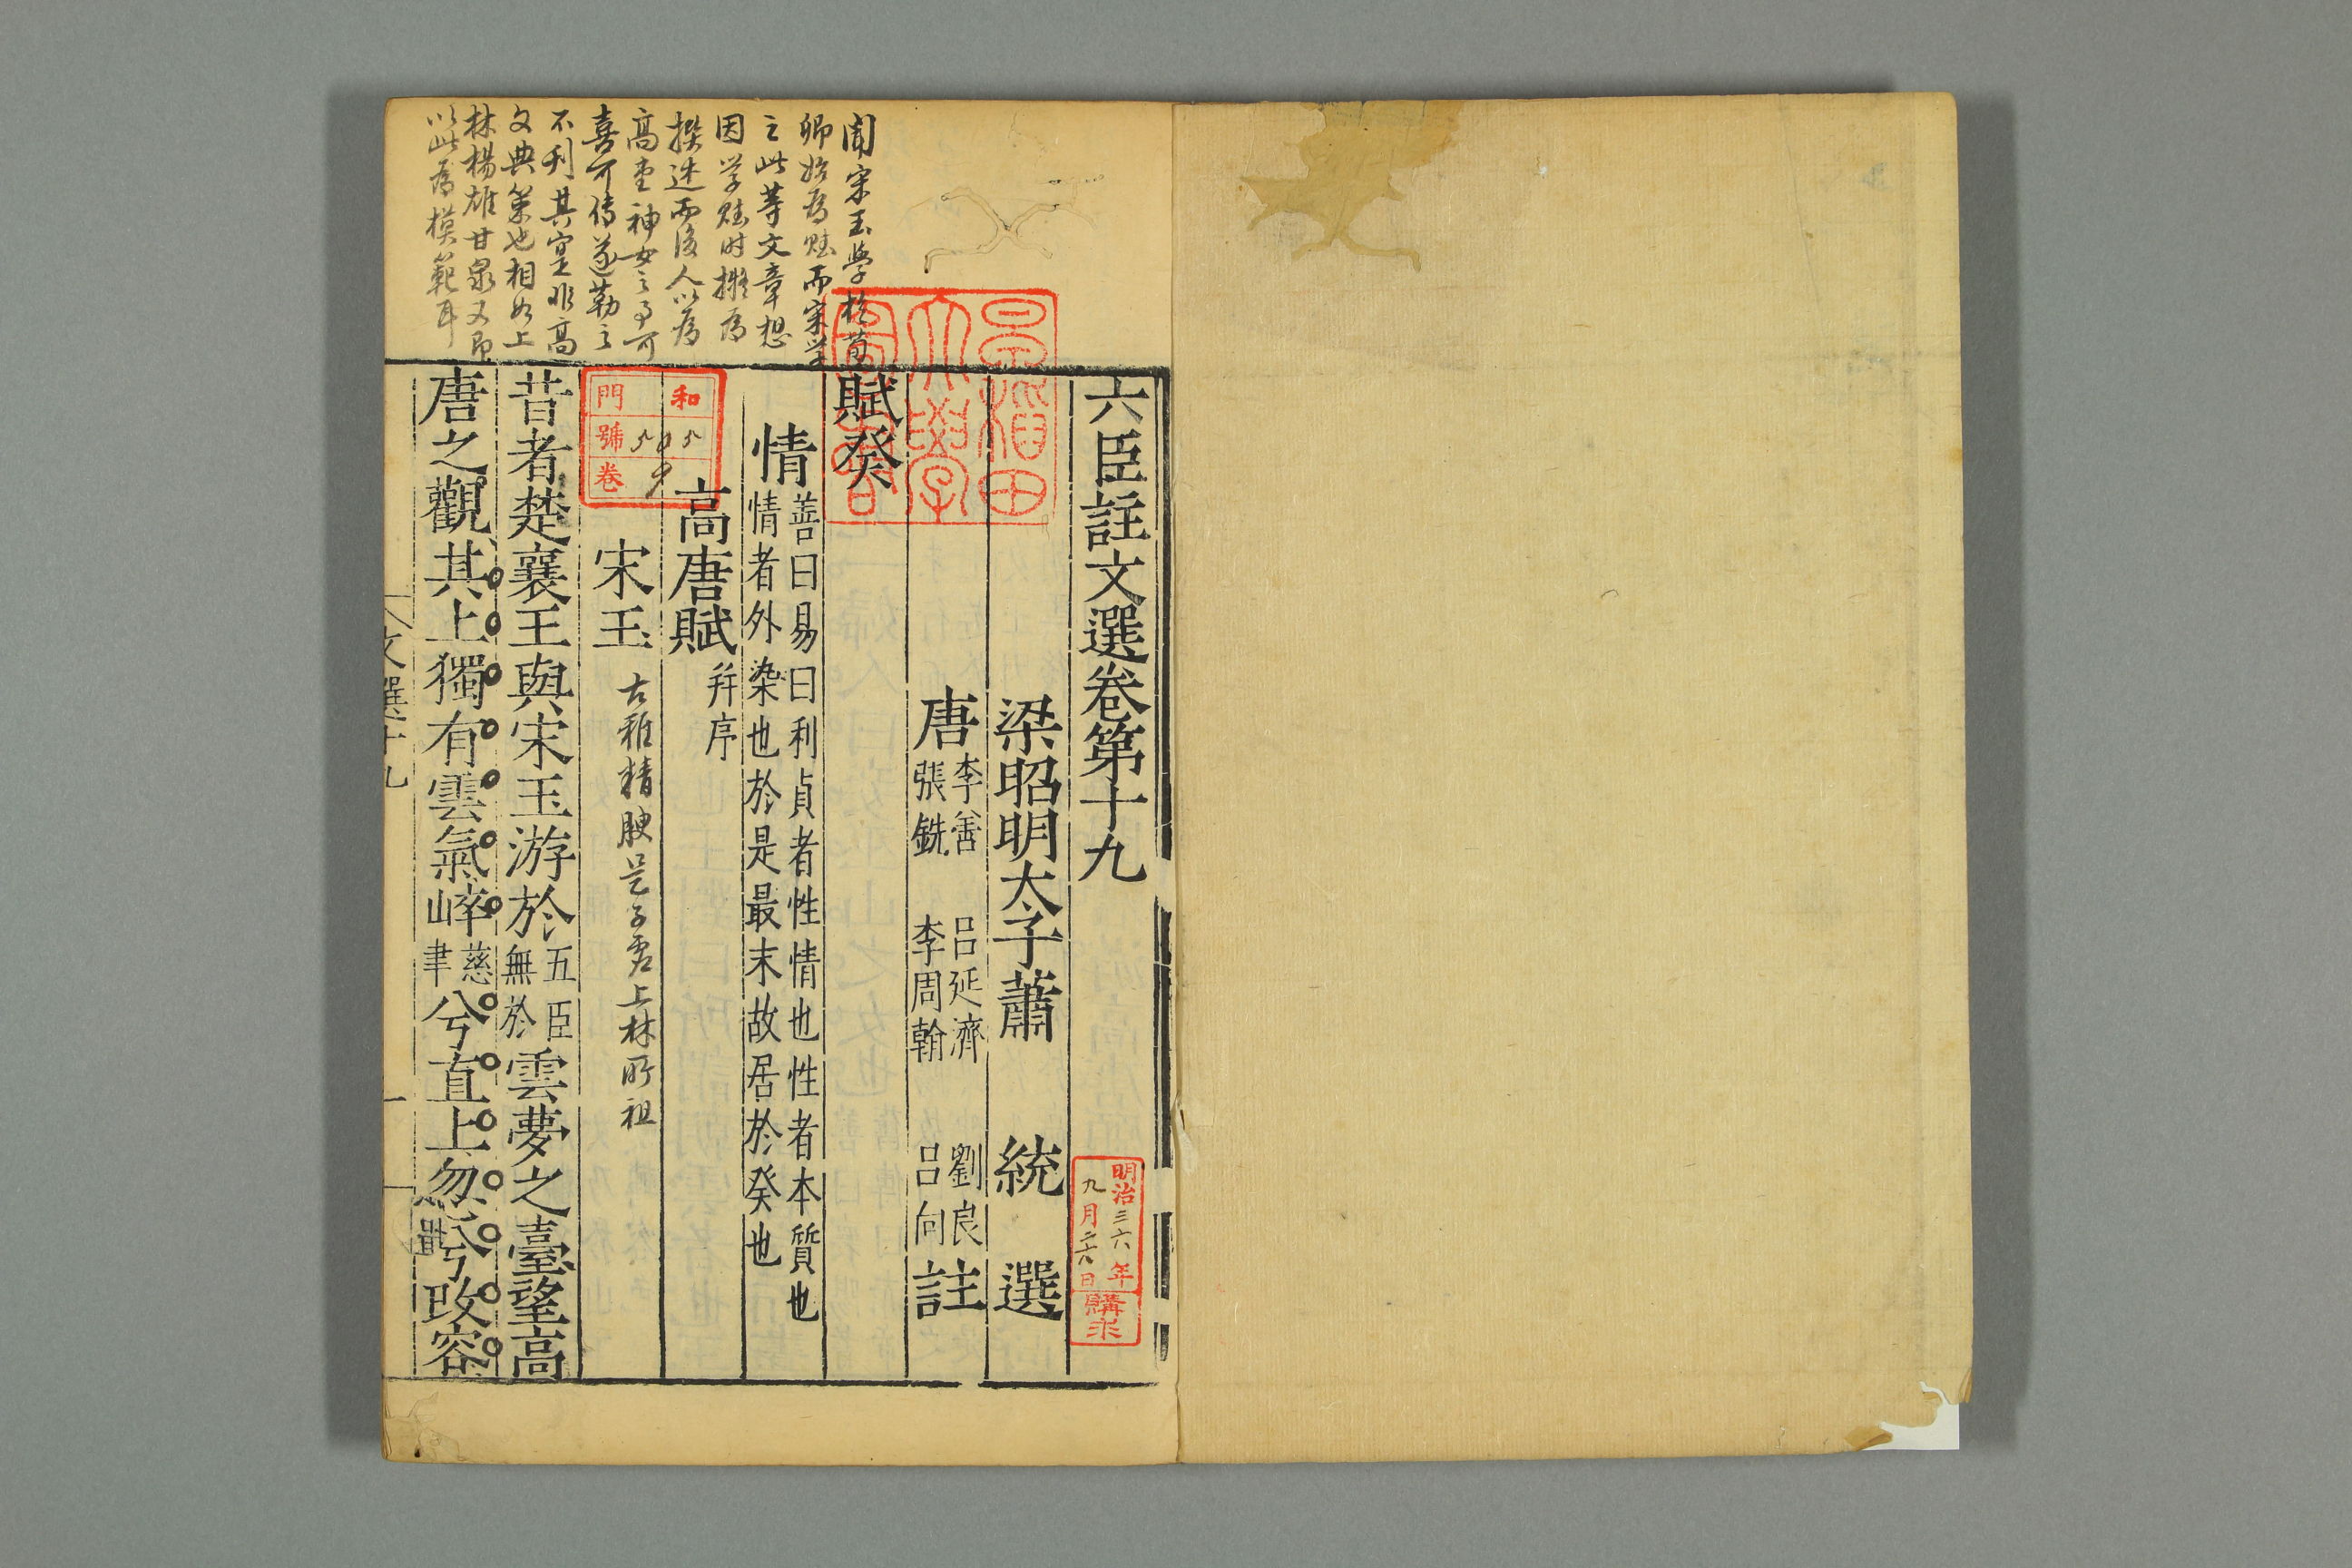 六臣註文選卷第十九
梁昭明太子蕭 統 選
唐 李善 呂延濟 劉良
張銑 李周翰 呂向 註
賦癸
情 善曰易曰利貞者性情也性者本質也
情者外染也於是最末故居於癸也
高唐賦 并序
宋玉 古雅精腴是子虛上林所祖
昔者楚襄王與宋玉游於 五臣無於 雲夢之臺望高
唐之觀其上獨有雲氣崪 慈聿 兮直上忽兮改容
文選十九
聞宋玉學於荀
卿始為賦而宋
之此等文章想
因学賦时擬為
撰述而後人以為
高唐神女之事可
喜可傳遂勒之
不刊其寔非高
文典策也相如上
林楊雄甘泉又即
以此為模範耳
早稲田大學圖書
和
門
號
卷
明治三六年
九月二六日
購求